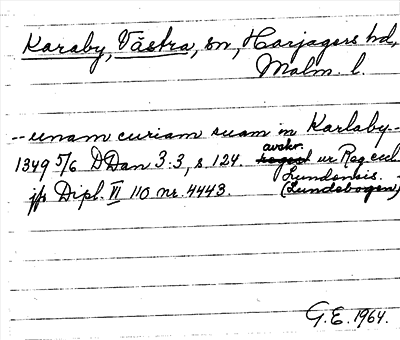 Karaby, Västra, sn, Harjagers hd,
Malm. l.
-- unam curiam suam in Karlaby --
1349 5/6 DDan 3:3, s. 124. avskr. ur Reg. eccl.
Lundensis.
jfr Dipl. VI 110 nr. 4443. (Lundebogen)
G.E. 1964.